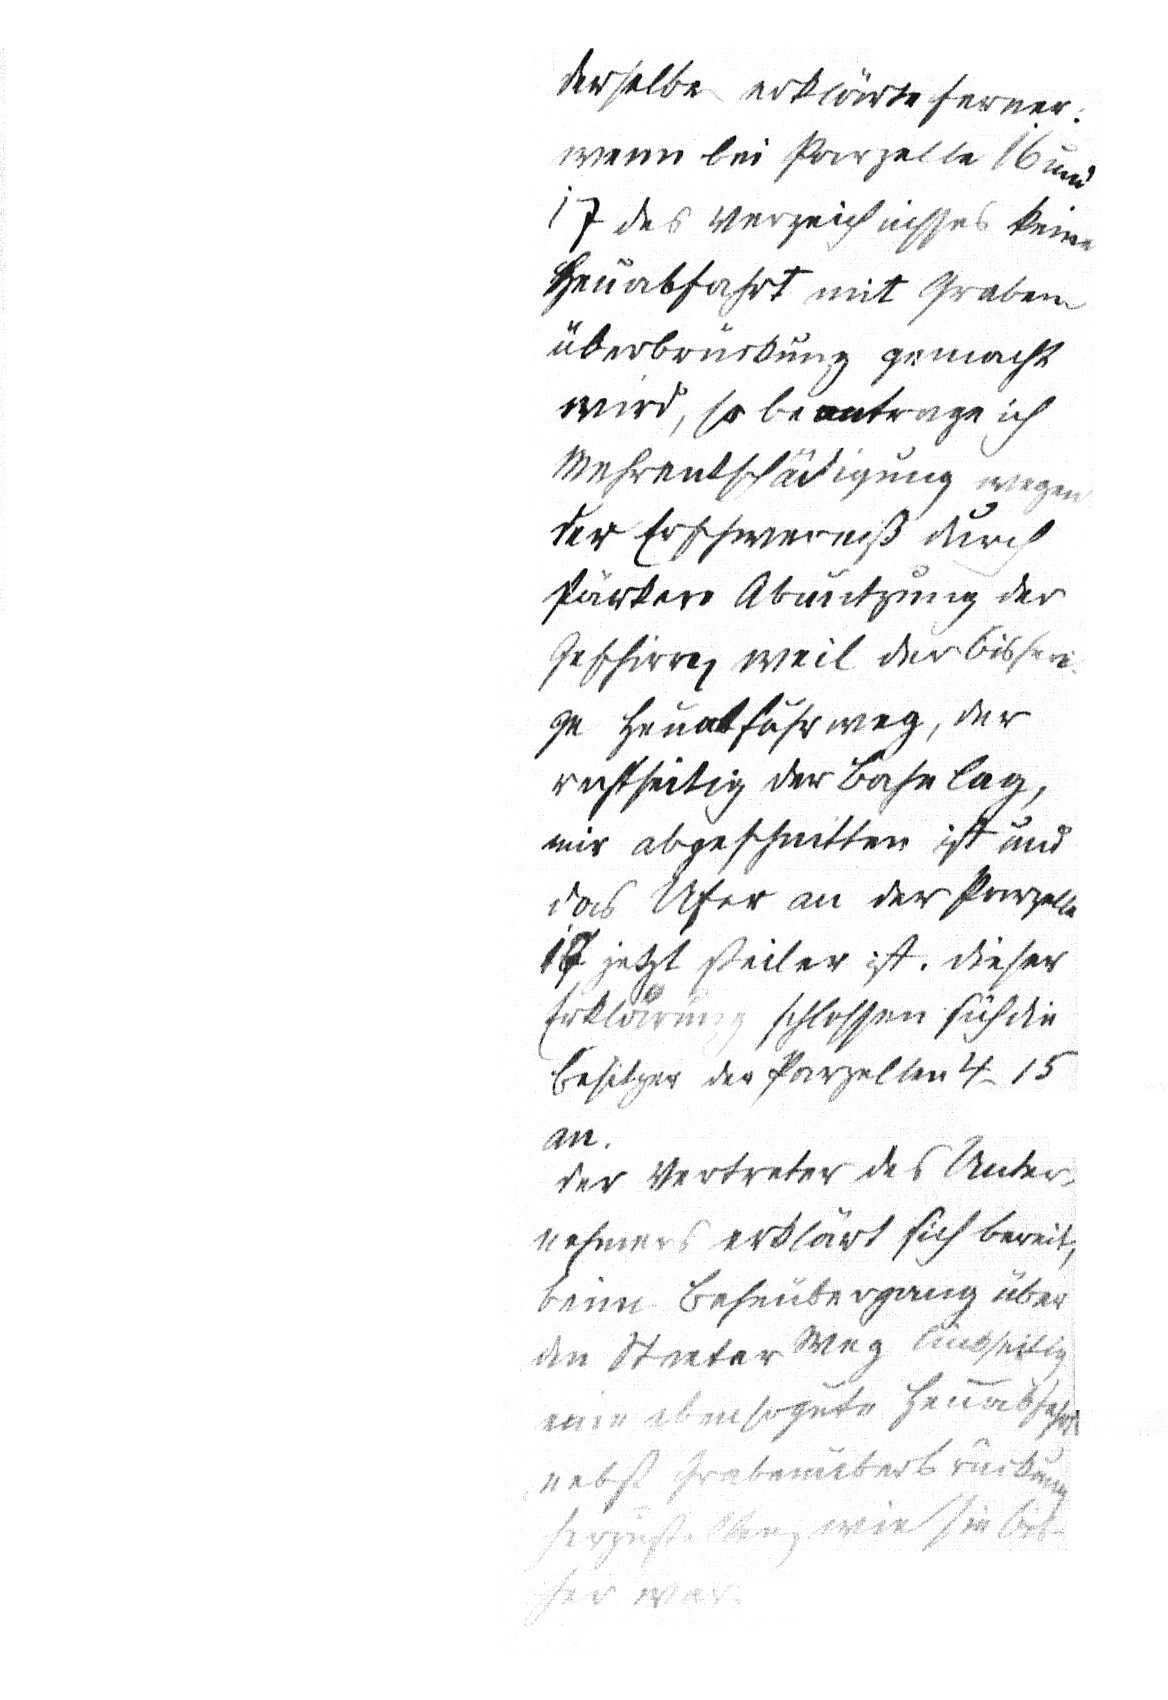 derselbe erklärte ferner:
wenn bei Parzelle 16 und
17 des Verzeichnisses keine
Heuabfahrt mit Graben
überbrückung gemacht
wird, so beantrage ich
Mehrentschädigung wegen
der Erschwerniß durch
stärkere Abnutzung der
Geschirre, weil der bisheri-
ge Heuabfuhrweg, der
rechtseitig der Bahn lag,
mir abgeschnitten ist und
das Ufer an der Parzelle
17 jetzt steiler ist. dieser
Erklärung schlossen sich die
Besitzer der Parzellen 4-15
an.
der Vertreter des Unter-
nehmers erklärt sich bereit,
beim Bahnübergang über
den Weg linkseitig
eine ebensogute Heuabfahrt
nebst Grabenüberbrückung
herzustellen, wie sie bis-
her war.